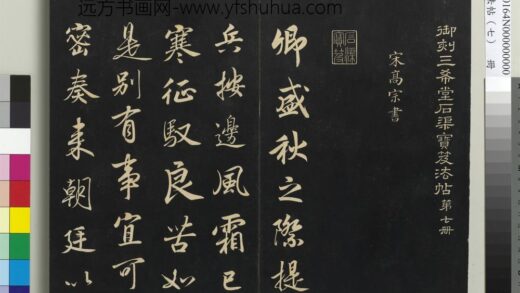 远方书画网-www.yfshuhua.com
御刻三希堂石渠寶笈法帖第七册
宋高宗書
卿盛秋之際提
兵按邊風霜已
寒征馭良苦如
是別有事宜可
密奏来朝廷以
0164N00000000000
帖（七）